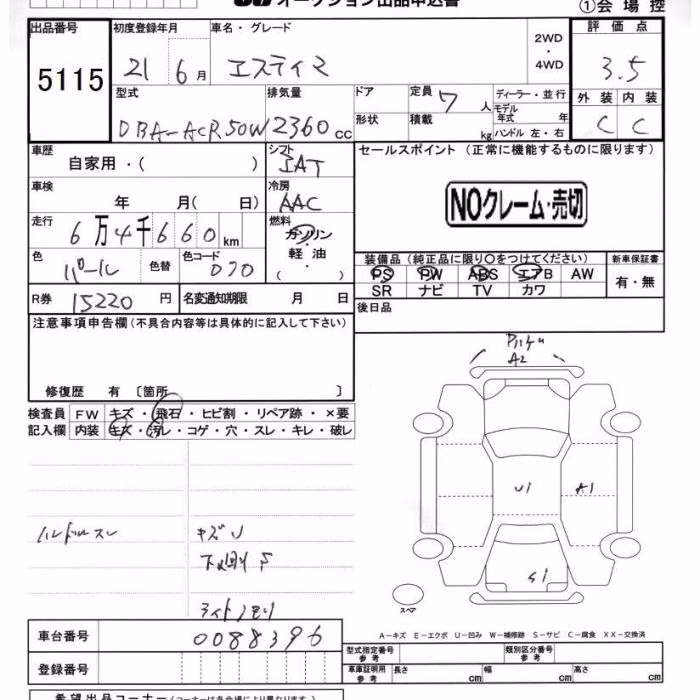 オークション出品申込書 ①会場控
出品番号 初度登録年月 車名・グレード 評価点
5115 21 6月 エスティマ 2WD・4WD 3.5
型式 排気量 ドア 定員 7人 ディーラー・並行 外装 内装
DBA-ACR50W 2360cc 形状 積載 kg モデル年式 年 ハンドル 左・右 C C
車歴 シフト セールスポイント (正常に機能するものに限ります)
自家用・( ) IAT
車検 冷房
年 月( 日) AAC NOクレーム・売切
走行 燃料
6万4千660km ガソリン
色 色替 色コード 軽油 装備品 (純正品に限り○をつけてください) 新車保証書
パール 070 ( ) PS PW ABS エアB AW 有・無
SR ナビ TV カワ
R券 15220円 名変通知期限 月 日 後日品
注意事項申告欄 (不具合内容等は具体的に記入して下さい)
A2
修復歴 有 〔箇所 〕
検査員 FW キズ・飛石・ヒビ割・リペア跡・×要
記入欄 内装 キズ・汚レ・コゲ・穴・スレ・キレ・破レ
U1 A1
ハンドルスレ キズU
下廻りS
S1
ライトクモリ
スペア
車台番号 0088396
A-キズ E-エクボ U-凹み W-補修跡 S-サビ C-腐食 XX-交換済
登録番号 型式指定番号 参考 類別区分番号 参考
車庫証明用 参考 長さ cm 幅 cm 高さ cm
希望出品コーナー (コーナーは各会場により異なります)